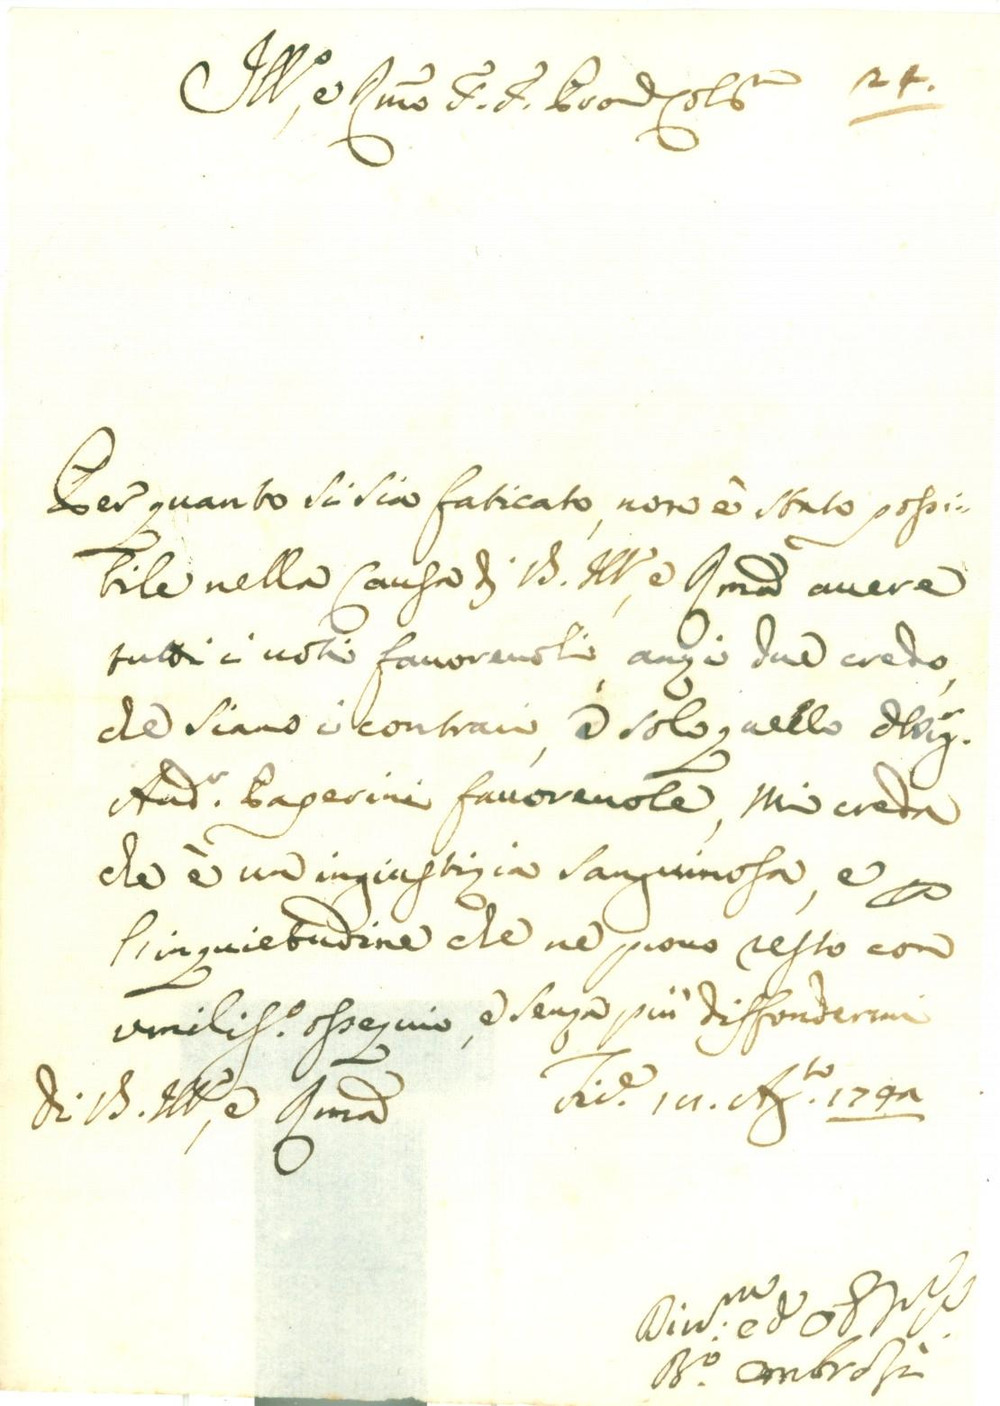 Ill.º, e Rmo P. P. Prone Colmo 24.
Per quanto si sia faticato, non è stato possi=
bile nella Causa di V. Ill, e Rma auere
tutti i uoti fauoreuoli, anzi due credo,
che siano i contrari, e solo quello del Sig.r
Aud.r Pagerini fauoreuole, Mi creda
che è un ingiustizia sanguinosa, e p
l'inquietudine che ne prouo resto con
umiliss.º ossequio, e senza più diffondermi
di V. Ill, e Rma
Ag.to
Diu.mo ed
Ambrosi